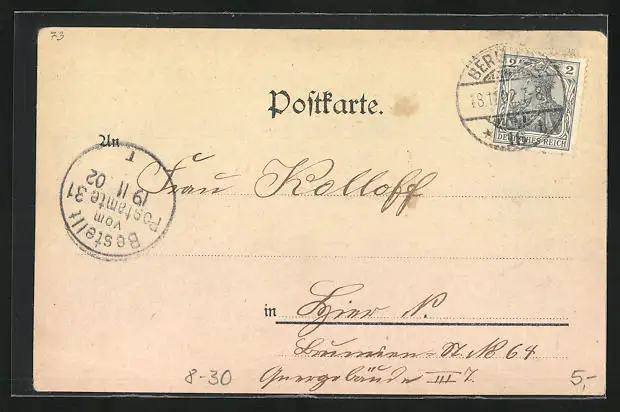 73
BERLIN
18.11.02
2 2
DEUTSCHES REICH
Postkarte.
An
Frau Kolloff
Bestellt
vom
Postamte 31
19 11 02
in Hier N.
Brunnen-St. No 64
Quergebäude III
8-30
5,-